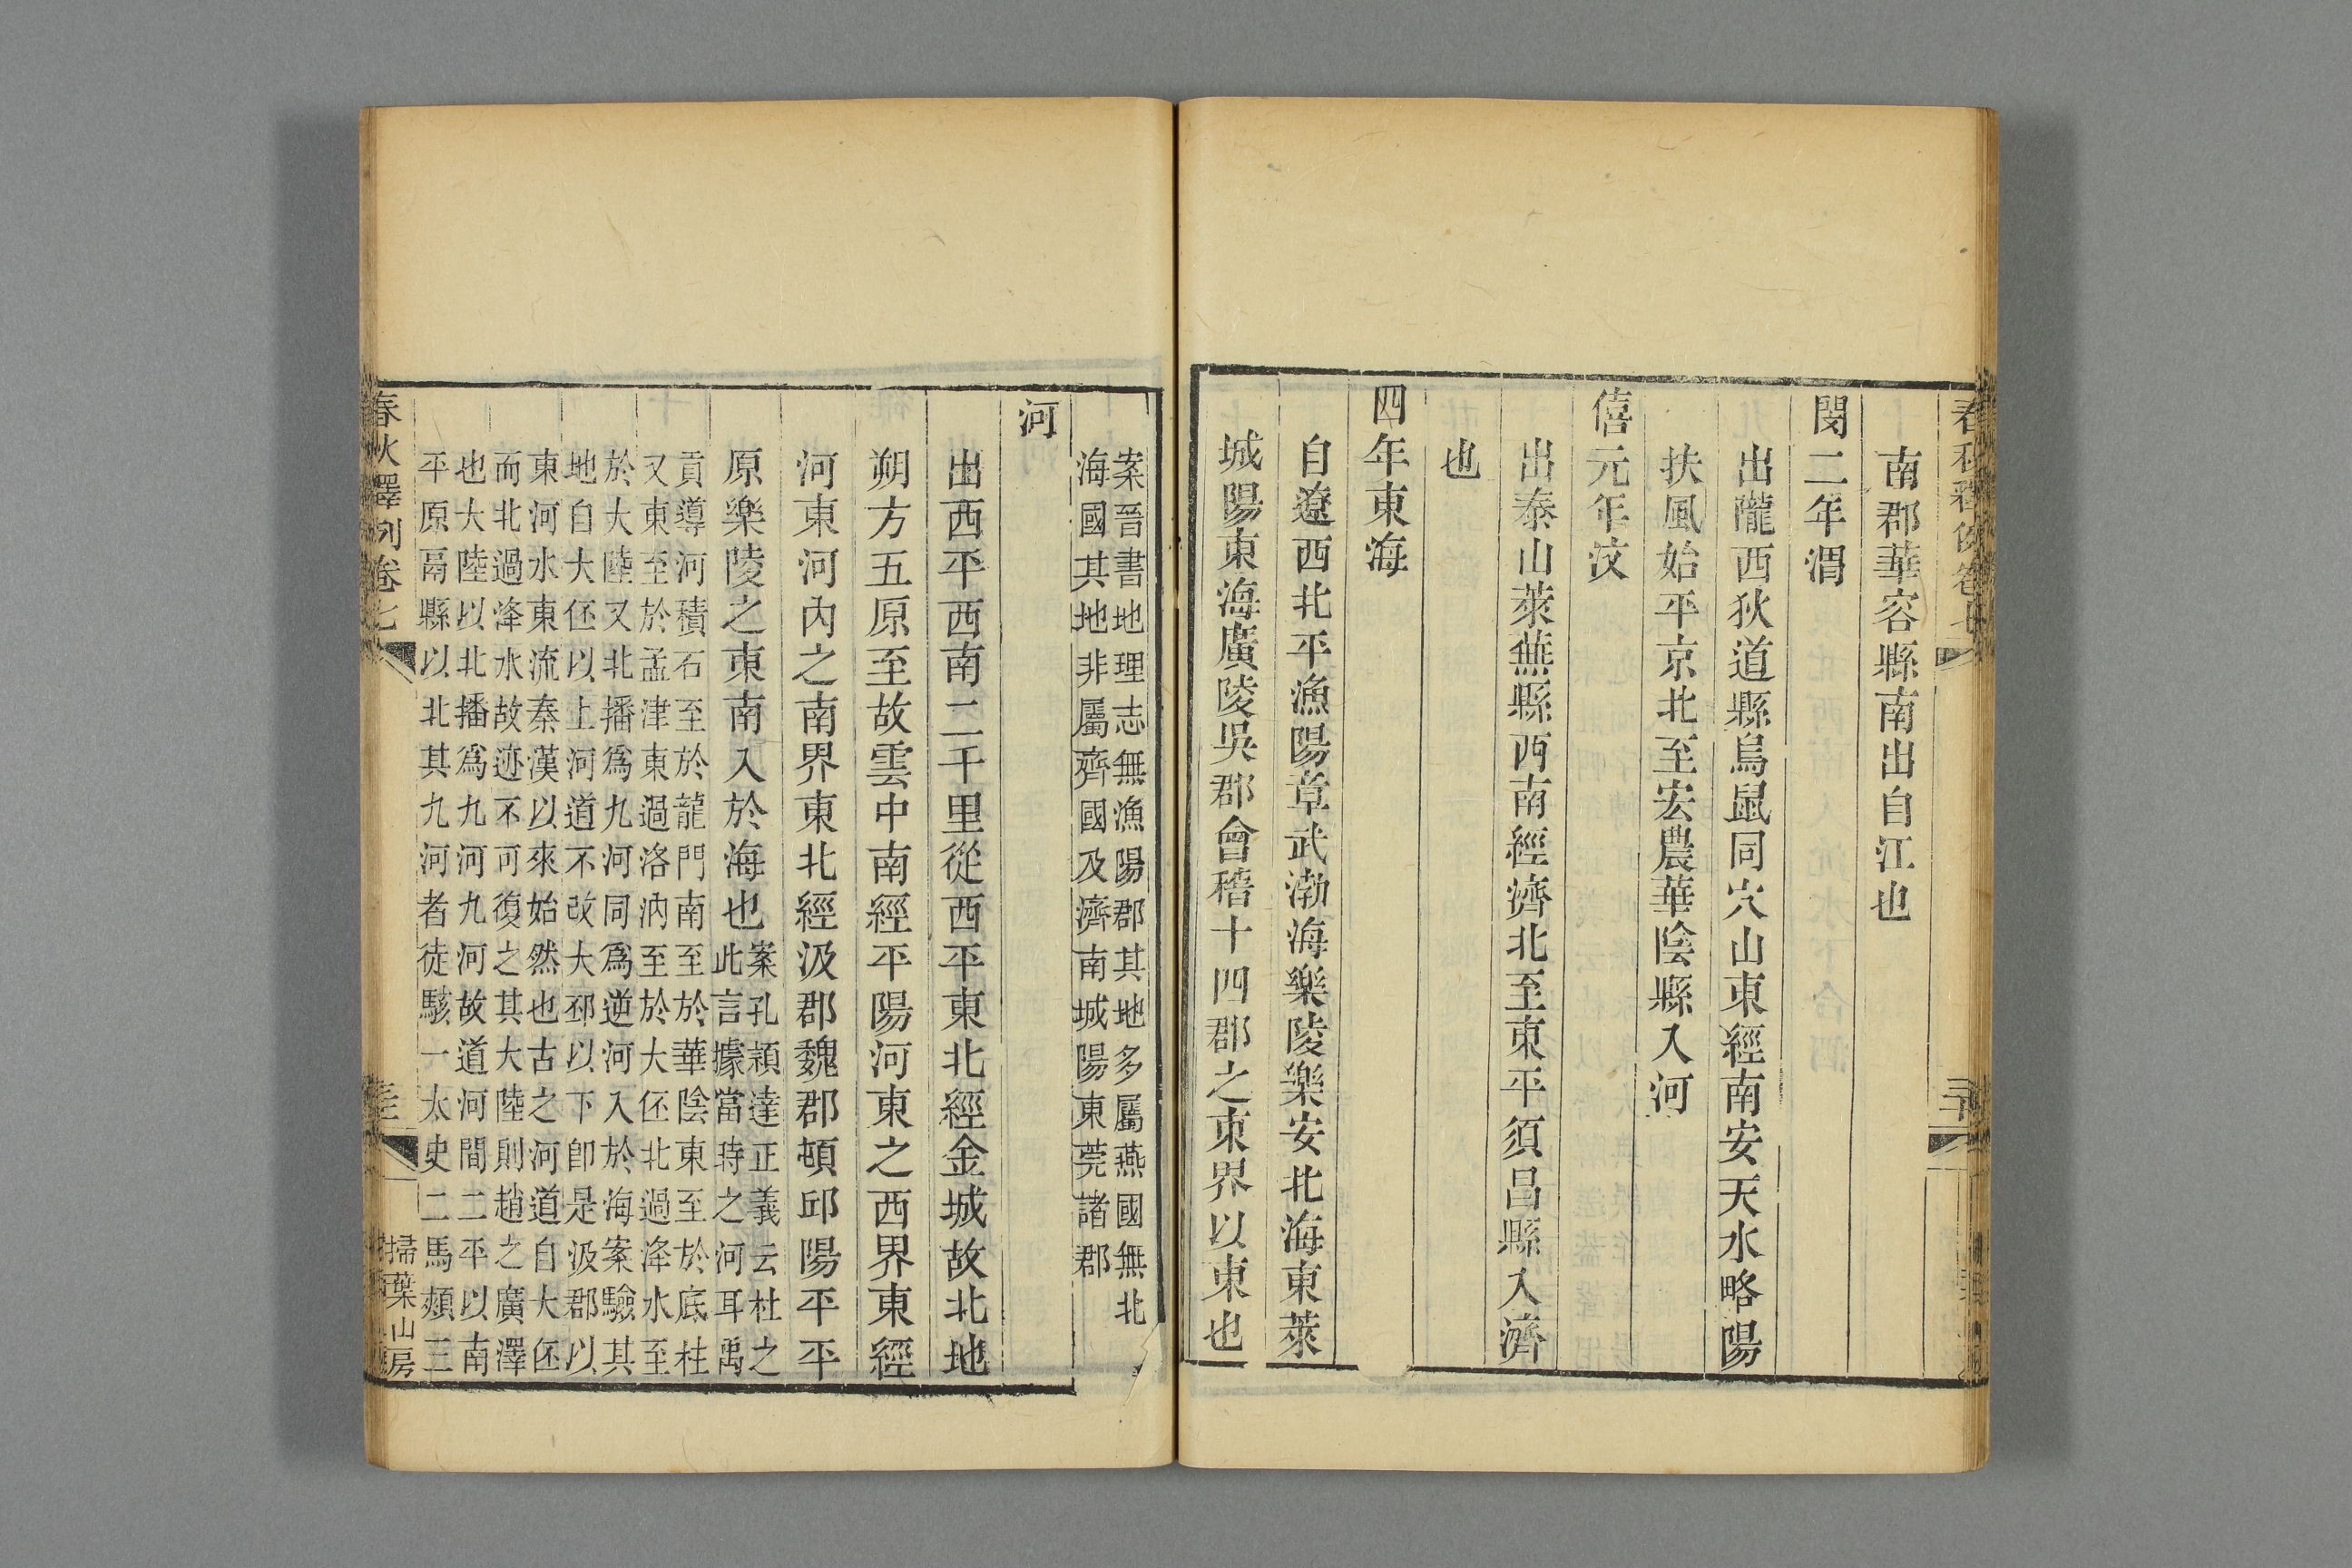 春秋釋例卷七
三十
南郡華容縣南出自江也
閔二年渭
出隴西狄道縣鳥鼠同穴山東經南安天水略陽
扶風始平京北至宏農華陰縣入河
僖元年汶
出泰山萊蕪縣西南經濟北至東平須昌縣入濟
也
四年東海
自遼西北平漁陽章武渤海樂陵樂安北海東萊
城陽東海廣陵吳郡會稽十四郡之東界以東也
案晉書地理志無漁陽郡其地多屬燕國無北
海國其地非屬齊國及濟南城陽東莞諸郡
河
出西平西南二千里從西平東北經金城故北地
朔方五原至故雲中南經平陽河東之西界東經
河東河內之南界東北經汲郡魏郡頓邱陽平平
原樂陵之東南入於海也
案孔穎達正義云杜之
此言據當時之河耳禹
貢導河積石至於龍門南至於華陰東至於底柱
又東至於孟津東過洛汭至於大伾北過洚水至
於大陸又北播爲九河同爲逆河入於海案驗其
地自大伾以上河道不改大邳以下卽是汲郡以
東河水東流秦漢以來始然也古之河道自大伾
而北過洚水故迹不可復之其大陸則趙之廣澤
也大陸以北播爲九河九河故道河間二平以南
平原鬲縣以北其九河者徒駭一太史二馬頰三
春秋釋例卷七
掃葉山房